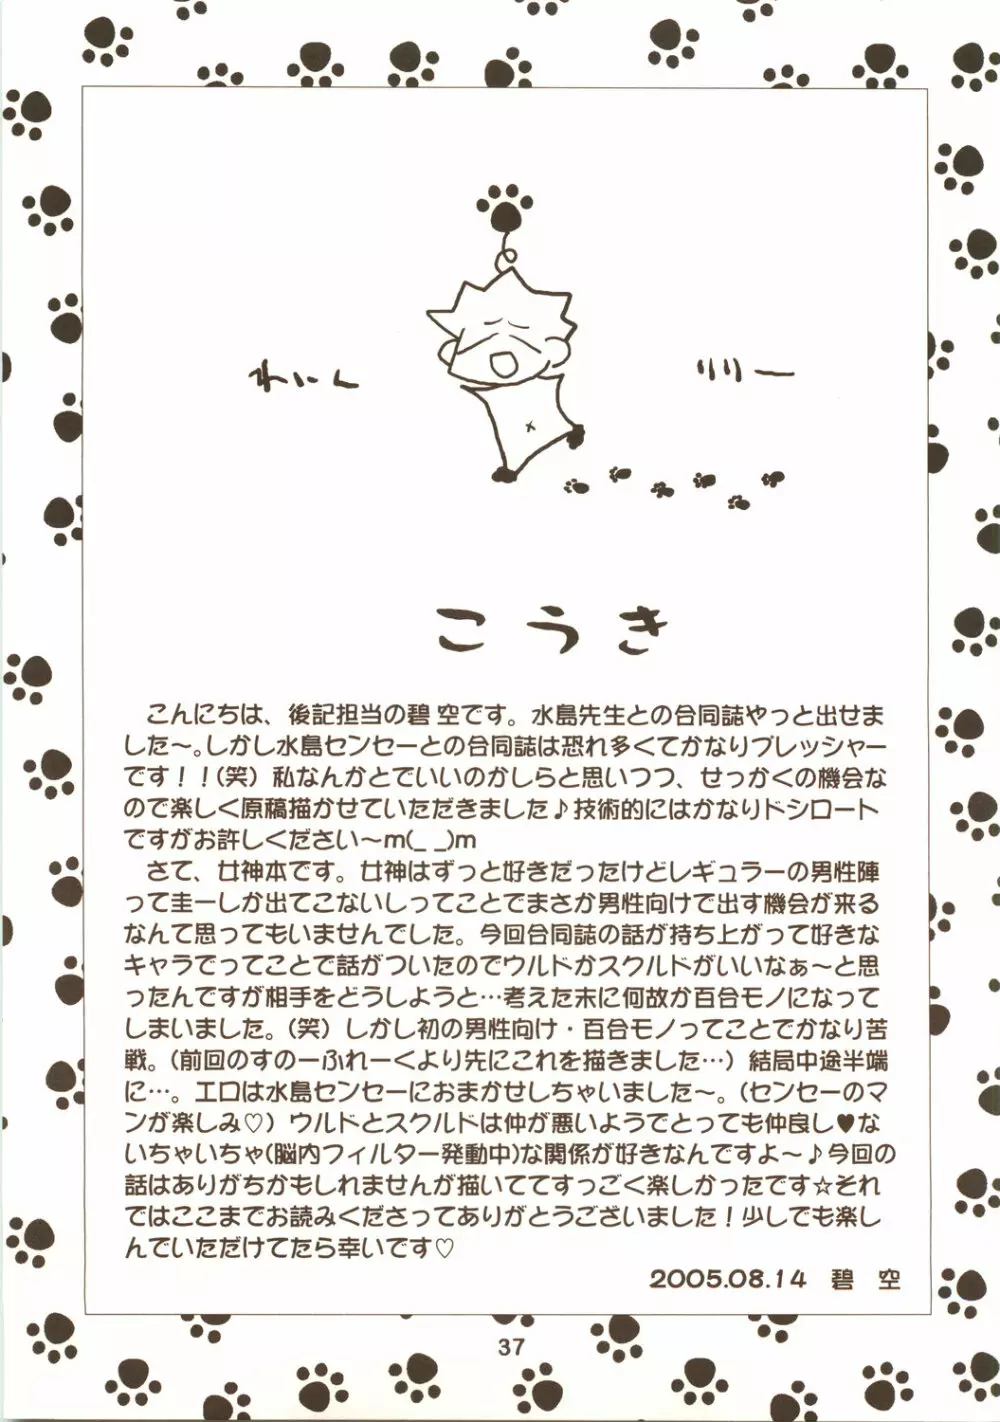 れいん
リリー
こうき
こんにちは、後記担当の碧 空です。水島先生との合同誌やっと出せま
した～。しかし水島センセーとの合同誌は恐れ多くてかなりプレッシャー
です！！(笑) 私なんかとでいいのかしらと思いつつ、せっかくの機会な
ので楽しく原稿描かせていただきました♪技術的にはかなりドシロート
ですがお許しください～m(_ _)m
さて、女神本です。女神はずっと好きだったけどレギュラーの男性陣
って圭一しか出てこないしってことでまさか男性向けで出す機会が来る
なんて思ってもいませんでした。今回合同誌の話が持ち上がって好きな
キャラでってことで話がついたのでウルドかスクルドがいいなぁ～と思
ったんですが相手をどうしようと…考えた末に何故か百合モノになって
しまいました。(笑) しかし初の男性向け・百合モノってことでかなり苦
戦。(前回のすのーふれーくより先にこれを描きました…) 結局中途半端
に…。エロは水島センセーにおまかせしちゃいました～。(センセーのマ
ンが楽しみ♡) ウルドとスクルドは仲が悪いようでとっても仲良し♥な
いちゃいちゃ(脳内フィルター発動中)な関係が好きなんですよ～♪今回の
話はありがちかもしれませんが描いててすっごく楽しかったです☆それ
ではここまでお読みくださってありがとうございました！少しでも楽し
んでいただけてたら幸いです♡
2005.08.14　碧　空
37